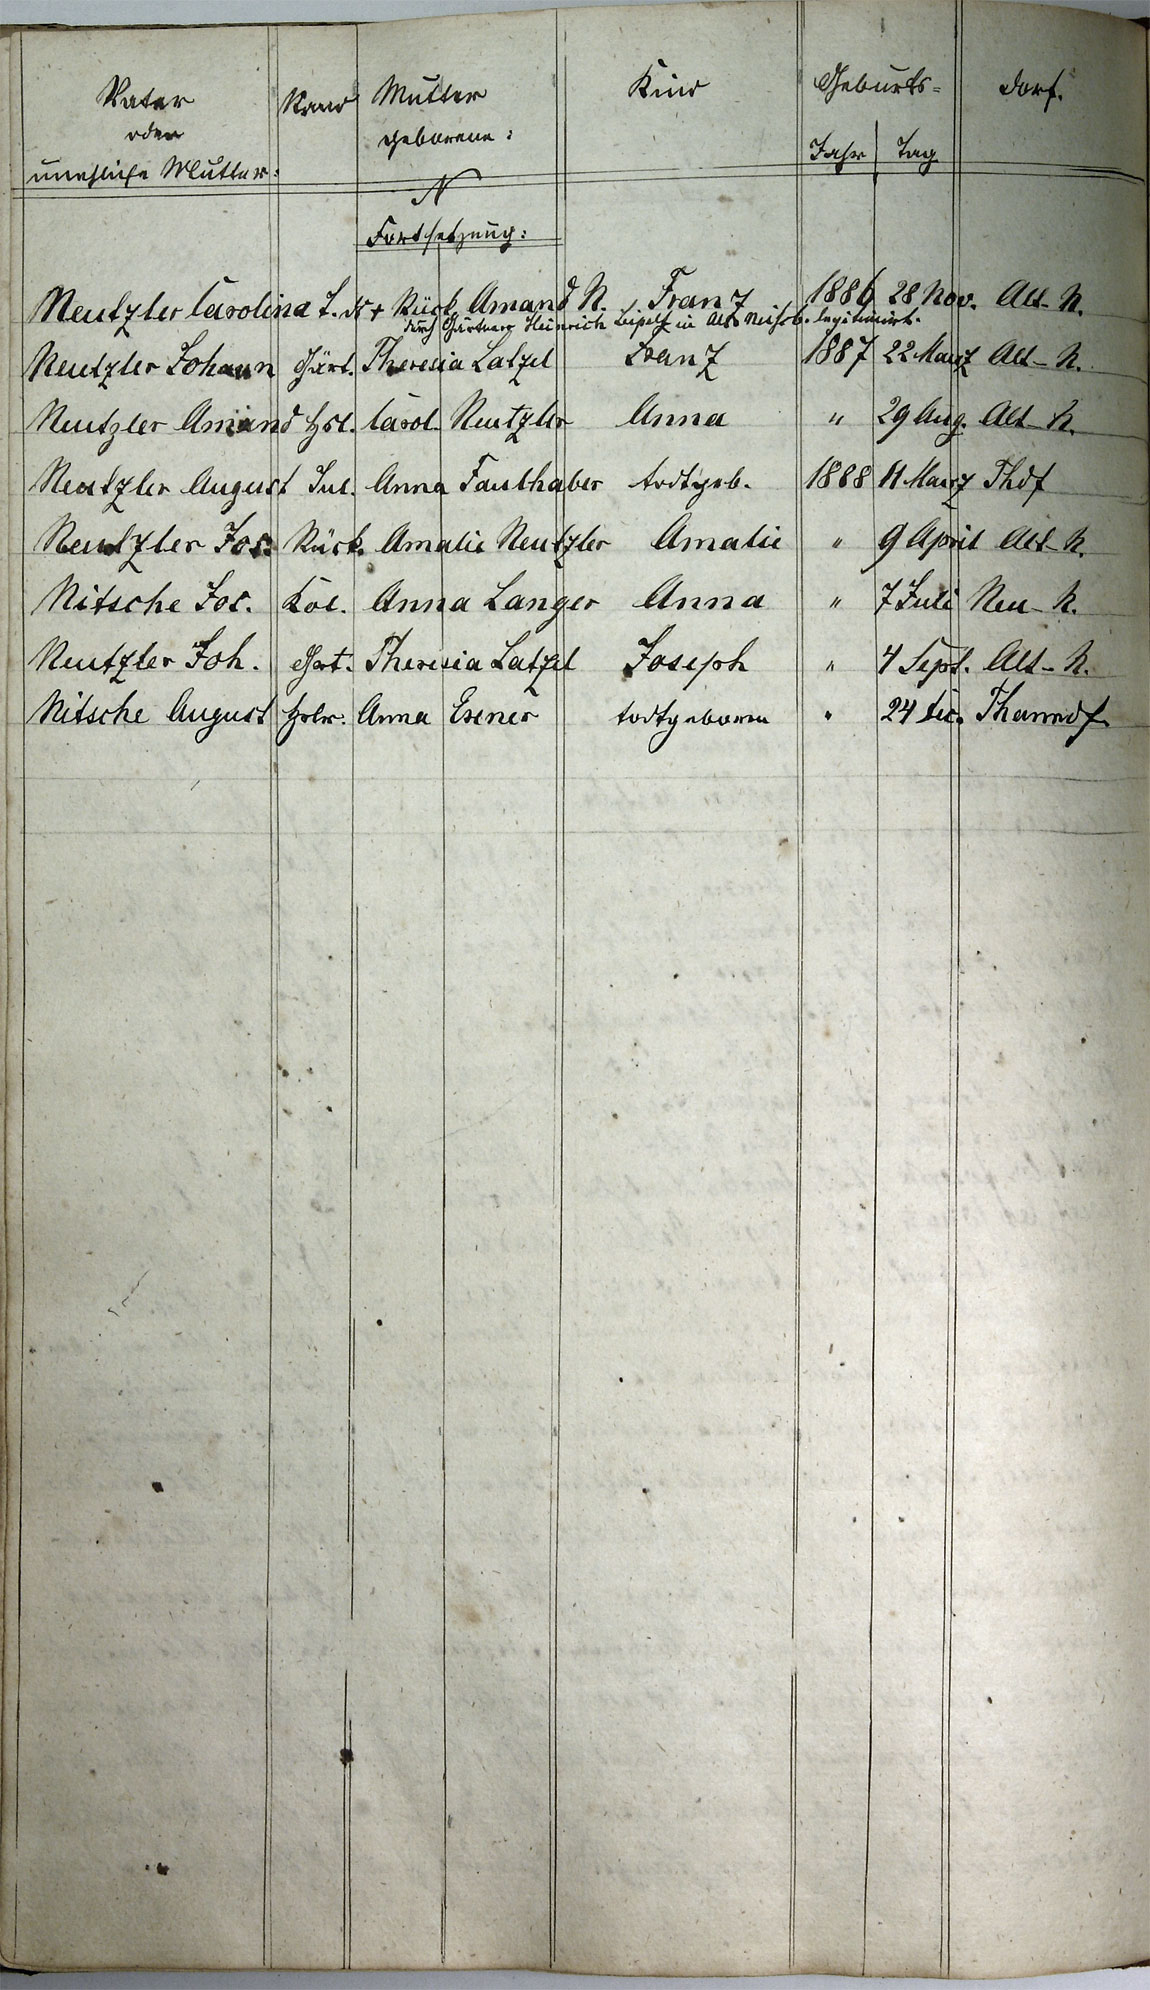 Vater Stand Mutter Kind Geburts= Dorf.
oder geborene:
uneheliche Mutter: Jahr Tag
N
Fortsetzung:
Neutzler Carolina T. d. + Rück. Amand N. Franz 1886 28 Nov. Alt-N.
durch Gärtner Heinrich in Alt legitimirt.
Neutzler Johann Gärt. Theresia Latzel Franz 1887 22 März Alt-N.
Neutzler Amand Hsl. Carol. Neutzler Anna " 29 Aug. Alt-N.
Neutzler August Inl. Anna Faulhaber todtgeb. 1888 11 März Thdf
Neutzler Jos. Rück. Amalie Neutzler Amalie " 9 April Alt-N.
Nitsche Jos. Col. Anna Langer Anna " 7 Juli Neu-N.
Neutzler Joh. Gärt. Theresia Latzel Joseph " 4 Sept. Alt-N.
Nitsche August Hslr. Anna Exner todtgeboren " 24 Dec. Thanndf